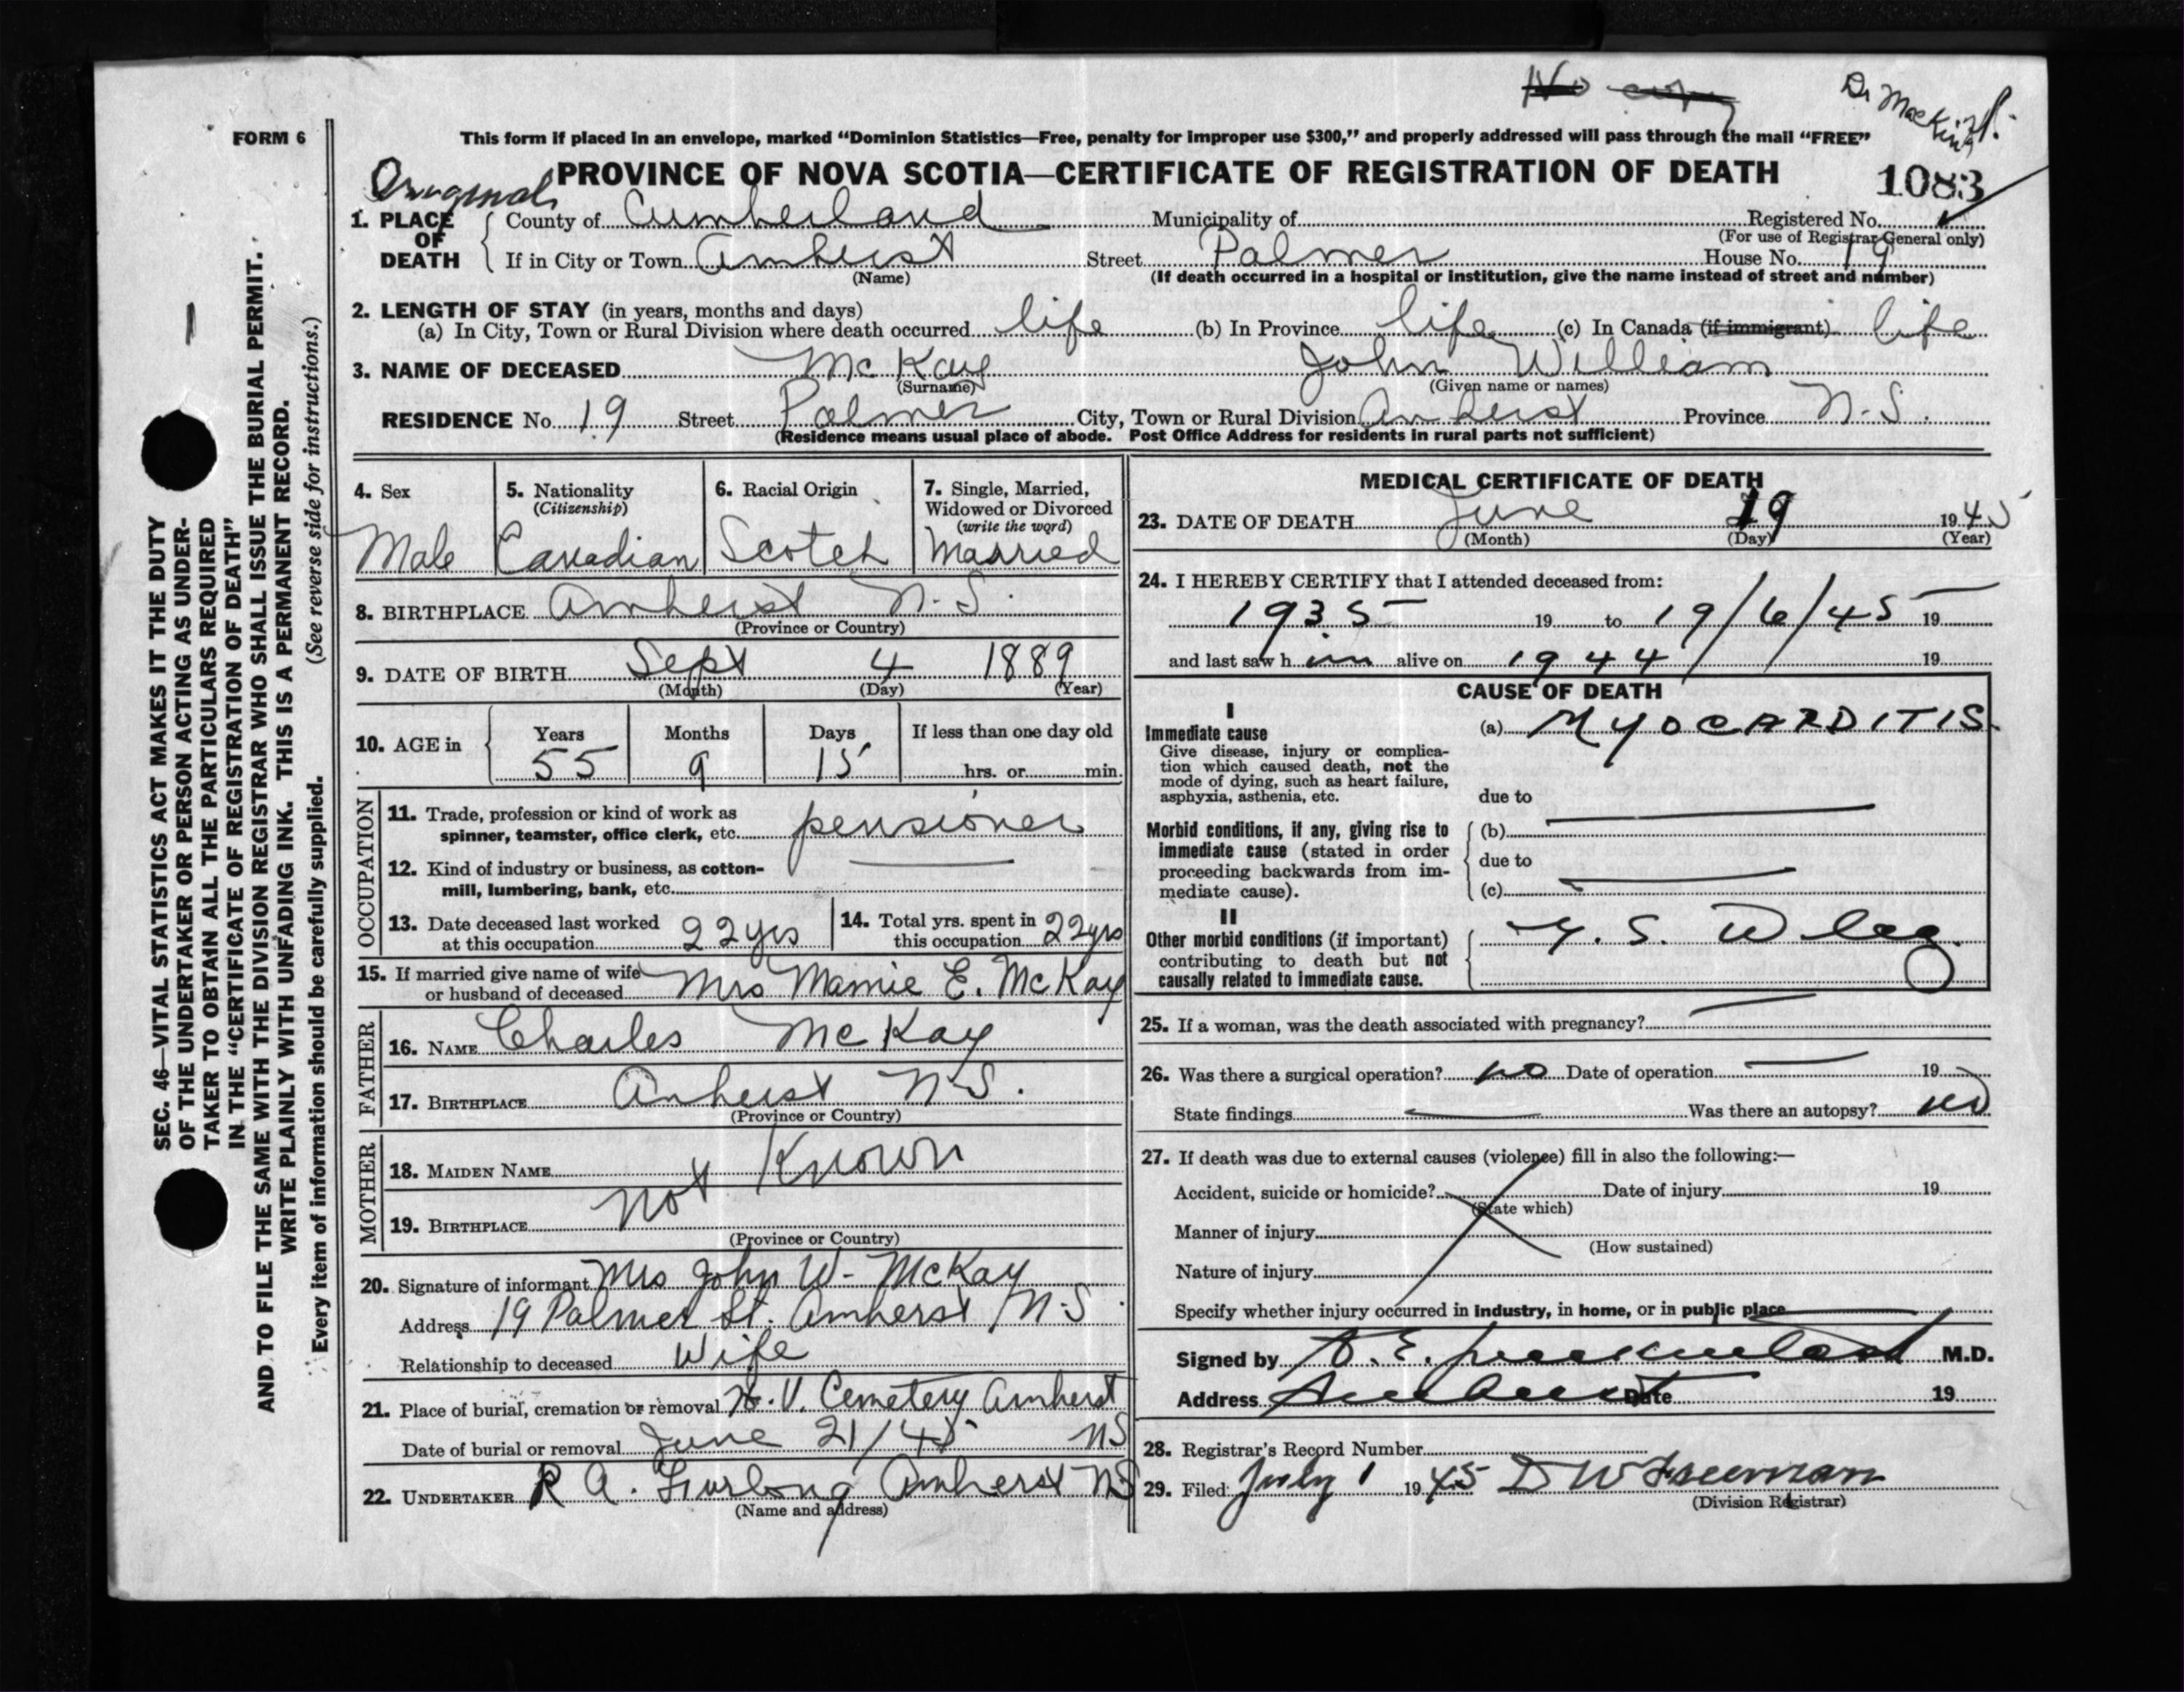 No copy
Dr MacKinn
FORM 6
This form if placed in an envelope, marked “Dominion Statistics—Free, penalty for improper use $300,” and properly addressed will pass through the mail “FREE”
Original PROVINCE OF NOVA SCOTIA—CERTIFICATE OF REGISTRATION OF DEATH 1083
1. PLACE OF DEATH County of Cumberland Municipality of Registered No.
(For use of Registrar General only)
If in City or Town Amherst Street Palmer House No. 19
(Name) (If death occurred in a hospital or institution, give the name instead of street and number)
2. LENGTH OF STAY (in years, months and days)
(a) In City, Town or Rural Division where death occurred life (b) In Province life (c) In Canada (if immigrant) life
3. NAME OF DECEASED McKay John William
(Surname) (Given name or names)
RESIDENCE No. 19 Street Palmer City, Town or Rural Division Amherst Province N.S.
(Residence means usual place of abode. Post Office Address for residents in rural parts not sufficient)
4. Sex Male
5. Nationality (Citizenship) Canadian
6. Racial Origin Scotch
7. Single, Married, Widowed or Divorced (write the word) Married
8. BIRTHPLACE Amherst N.S.
(Province or Country)
9. DATE OF BIRTH Sept 4 1889
(Month) (Day) (Year)
10. AGE in Years 55 Months 9 Days 15 If less than one day old hrs. or min.
OCCUPATION
11. Trade, profession or kind of work as spinner, teamster, office clerk, etc. pensioner
12. Kind of industry or business, as cotton-mill, lumbering, bank, etc.
13. Date deceased last worked at this occupation 22 yrs
14. Total yrs. spent in this occupation 22 yrs
15. If married give name of wife or husband of deceased Mrs Mamie E. McKay
FATHER
16. NAME Charles McKay
17. BIRTHPLACE Amherst N.S.
(Province or Country)
MOTHER
18. MAIDEN NAME
not Known
19. BIRTHPLACE
(Province or Country)
20. Signature of informant Mrs John W. McKay
Address 19 Palmer St. Amherst N.S.
Relationship to deceased Wife
21. Place of burial, cremation or removal H.V. Cemetery Amherst
Date of burial or removal June 21/45 NS
22. UNDERTAKER R A. Furlong Amherst NS
(Name and address)
MEDICAL CERTIFICATE OF DEATH
23. DATE OF DEATH June 19 1945
(Month) (Day) (Year)
24. I HEREBY CERTIFY that I attended deceased from:
1935 19 to 19/6/45 19
and last saw him alive on 1944 19
CAUSE OF DEATH
I
Immediate cause
Give disease, injury or complication which caused death, not the mode of dying, such as heart failure, asphyxia, asthenia, etc.
(a) MYOCARDITIS.
due to
Morbid conditions, if any, giving rise to immediate cause (stated in order proceeding backwards from immediate cause).
(b)
due to
(c)
II
Other morbid conditions (if important) contributing to death but not causally related to immediate cause.
S. W leg.
25. If a woman, was the death associated with pregnancy?
26. Was there a surgical operation? no Date of operation 19
State findings Was there an autopsy? no
27. If death was due to external causes (violence) fill in also the following:—
Accident, suicide or homicide? Date of injury 19
(State which)
Manner of injury
(How sustained)
Nature of injury
Specify whether injury occurred in industry, in home, or in public place
Signed by M.D.
Address Amherst Date 19
28. Registrar's Record Number
29. Filed: July 1 1945 D W Freeman
(Division Registrar)
SEC. 46—VITAL STATISTICS ACT MAKES IT THE DUTY
OF THE UNDERTAKER OR PERSON ACTING AS UNDER-
TAKER TO OBTAIN ALL THE PARTICULARS REQUIRED
IN THE “CERTIFICATE OF REGISTRATION OF DEATH”
AND TO FILE THE SAME WITH THE DIVISION REGISTRAR WHO SHALL ISSUE THE BURIAL PERMIT.
WRITE PLAINLY WITH UNFADING INK. THIS IS A PERMANENT RECORD.
Every item of information should be carefully supplied. (See reverse side for instructions.)